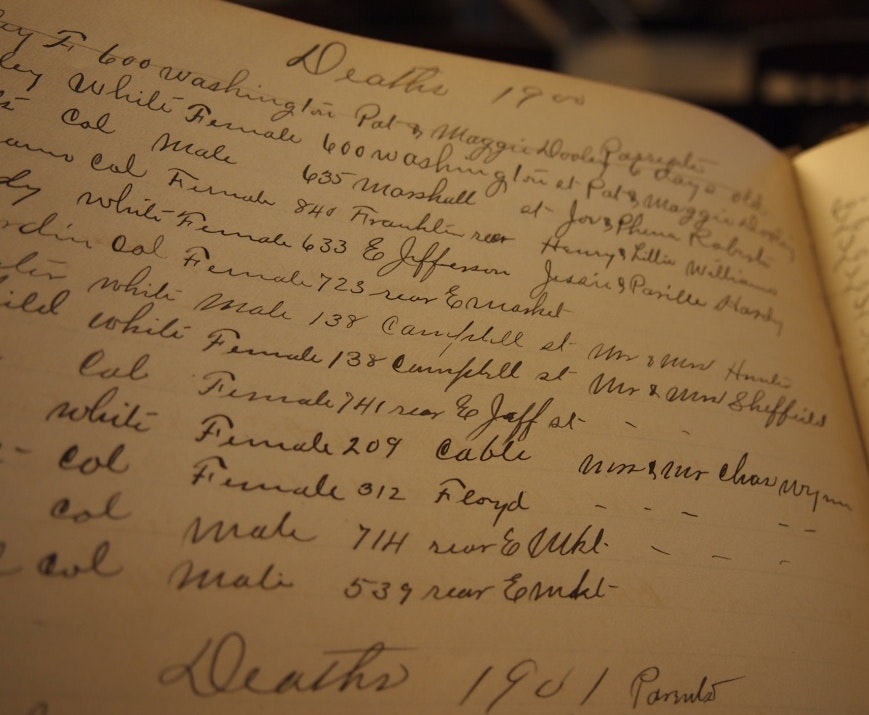 Deaths 1900
F 600 Washington Pat & Maggie Dooley Parents
White Female 600 Washington st Pat & Maggie Dooley 6 days old
Col Male 635 Marshall st Joe & Phena Roberts
Col Female 840 Franklin rear Henry & Lillie Williams
white Female 633 E Jefferson Jessie & Hardy
Col Female 723 rear E market
white Male 138 Campbell st Mr & Mrs Hunter
white Female 138 Campbell st Mr & Mrs Sheffield
Col Female 741 rear E Jeff st - -
white Female 209 Cable Mrs & Mr Chas Wynn
Col Female 312 Floyd - - - - -
Col Male 714 rear E Mkt - - -
Col Male 539 rear E mkt
Deaths 1901 Parents